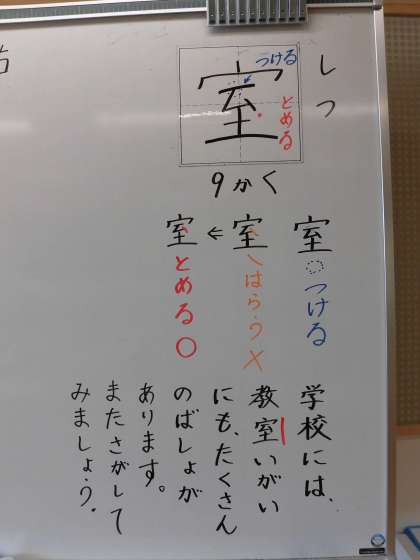 しつ
室
つける
とめる
9かく
室
つける
室
はらう×
⇐
室
とめる○
学校には、
教室いがい
にも、たくさん
のばしょが
あります。
またさがして
みましょう。